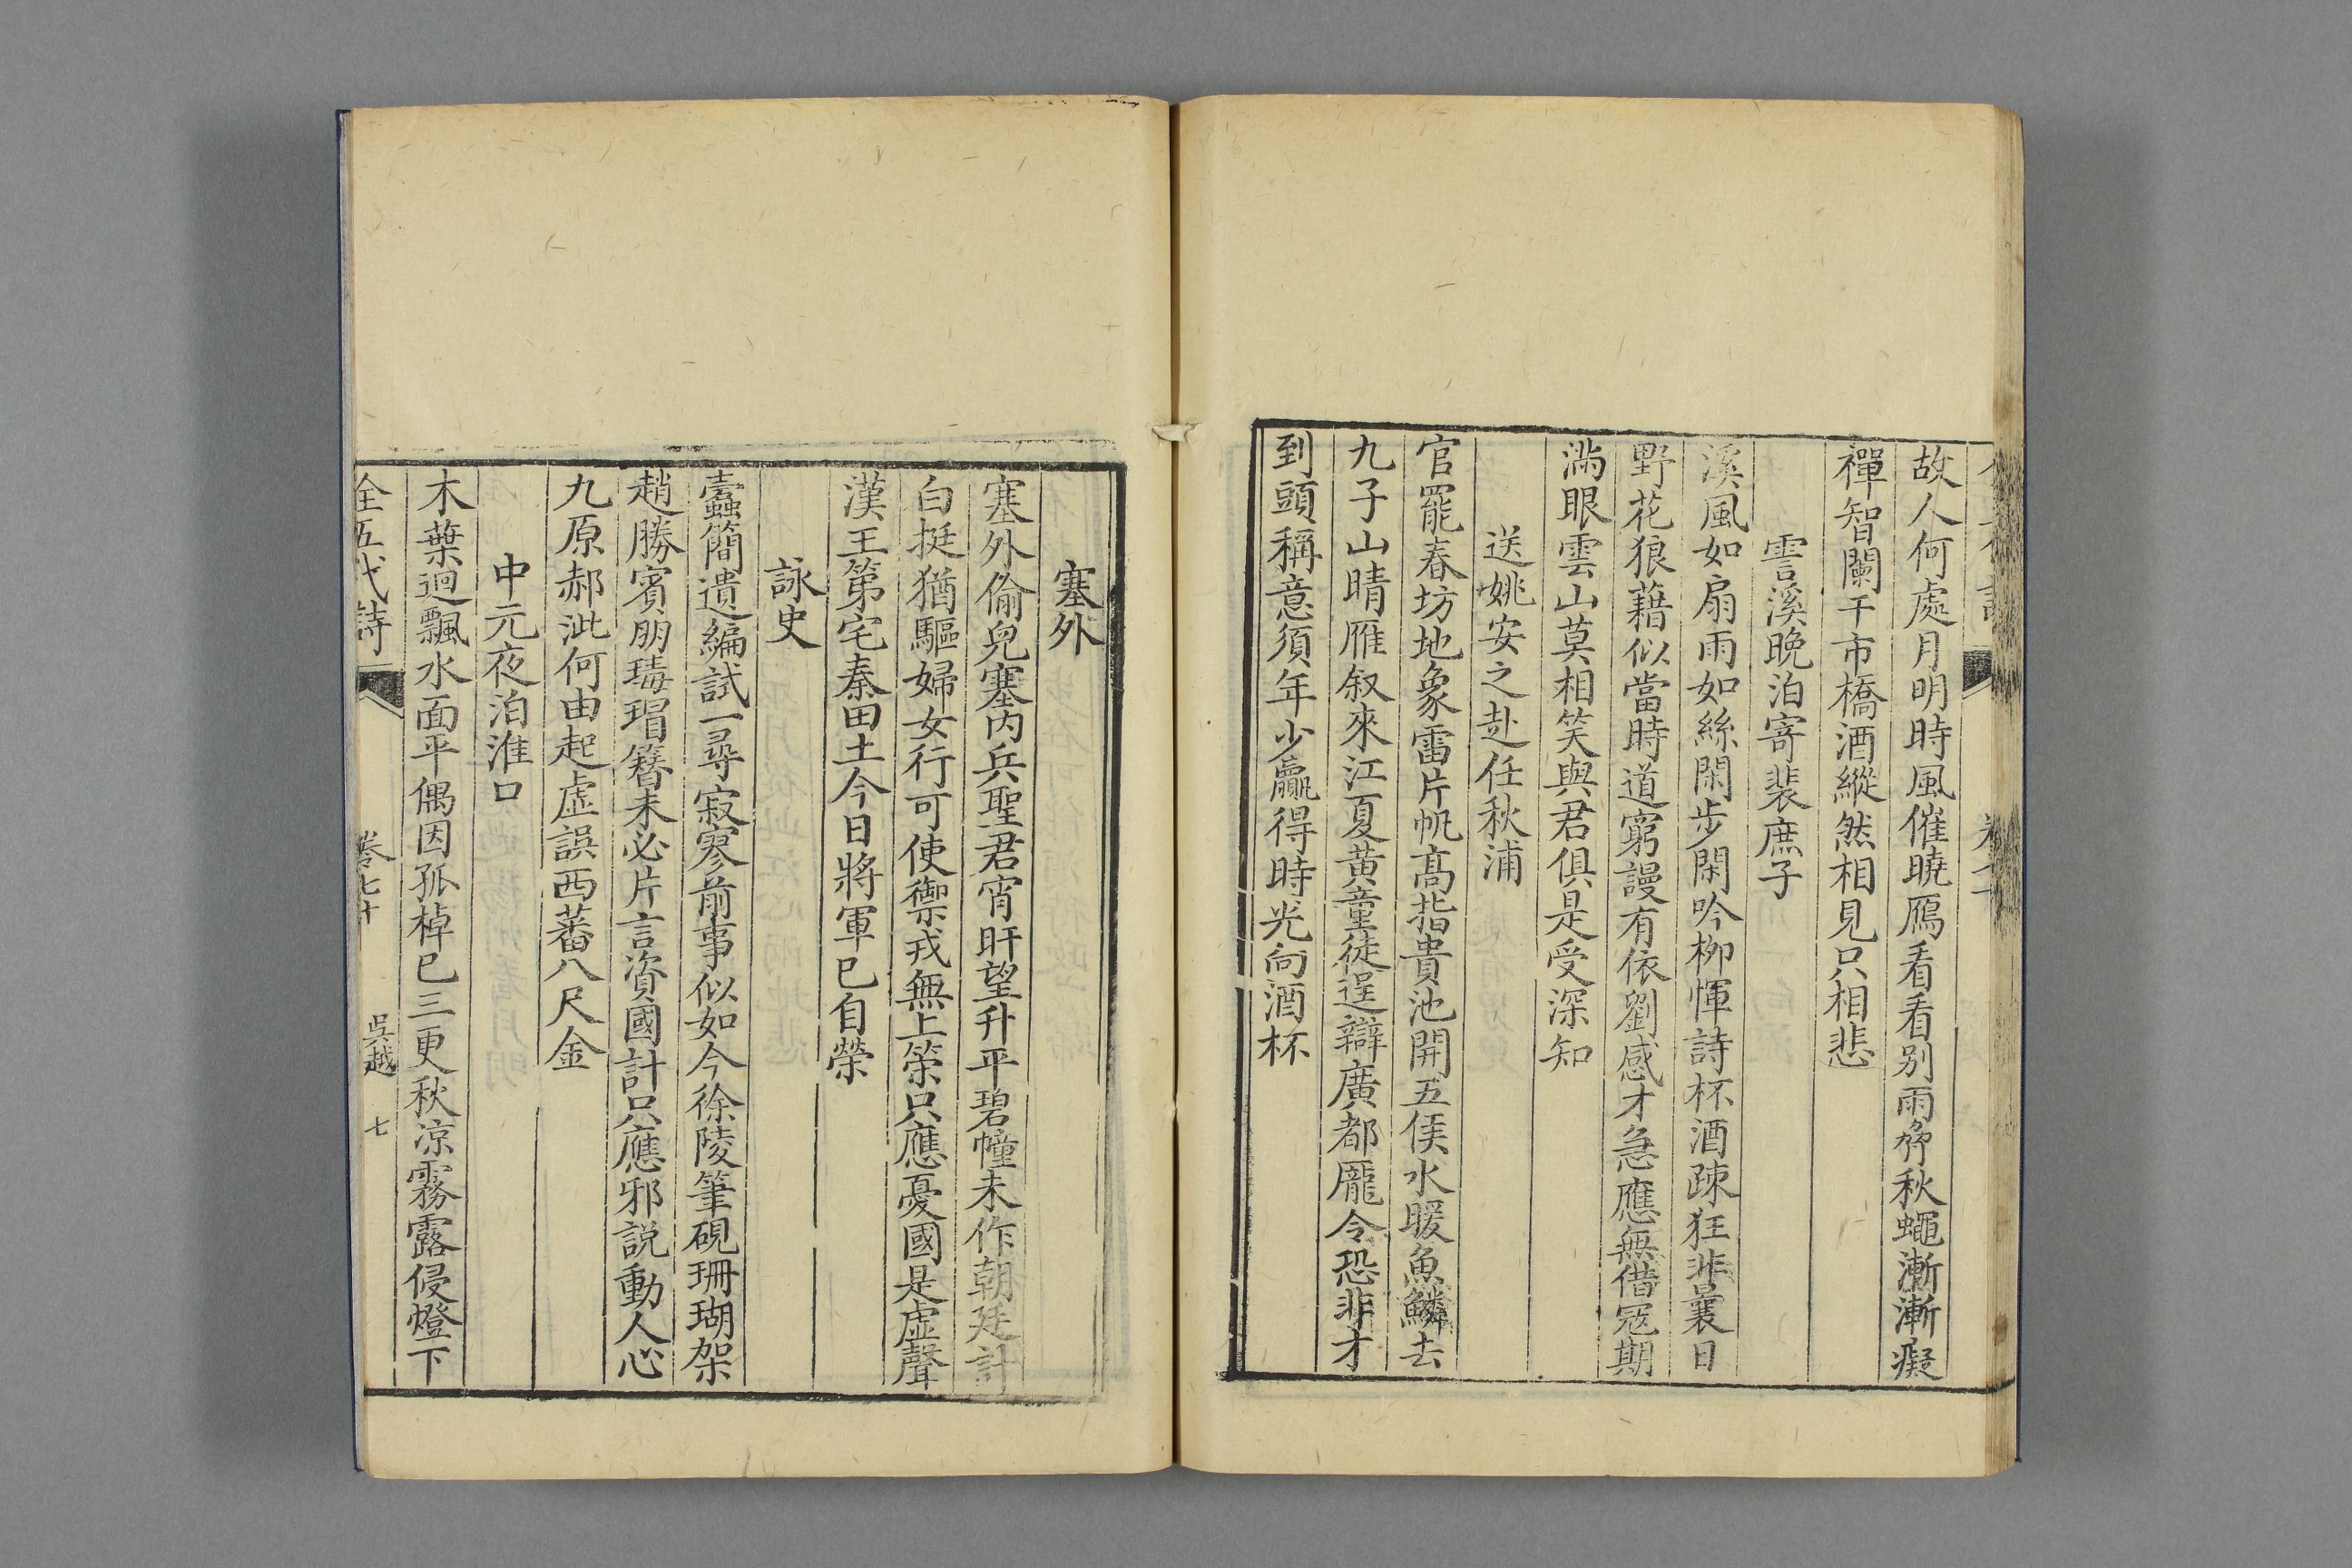 故人何處月明時風催曉鴈看看别雨脅秋蠅漸漸癡
禪智闌干市橋酒縱然相見只相悲
霅溪晚泊寄裴庶子
溪風如扇雨如絲閑步閑吟柳惲詩杯酒疎狂非曩日
野花狼藉似當時道窮謾有依劉感才急應無借寇期
滿眼雲山莫相笑與君俱是受深知
送姚安之赴任秋浦
官罷春坊地象雷片帆高指貴池開五侯水暖魚鱗去
九子山晴雁叙來江夏黃童徒逞辯廣都龐令恐非才
到頭稱意須年少贏得時光向酒杯
塞外
塞外偷兒塞內兵聖君宵旰望升平碧幢未作朝廷計
白挺猶驅婦女行可使禦戎無上策只應憂國是虛聲
漢王第宅秦田土今日將軍已自榮
詠史
蠧簡遺編試一尋寂寥前事似如今徐陵筆硯珊瑚架
趙勝賓朋瑇瑁簪未必片言資國計只應邪説動人心
九原郝泚何由起虛誤西蕃八尺金
中元夜泊淮口
木葉迴飄水面平偶因孤棹已三更秋凉霧露侵燈下
全五代詩
卷七十
吳越
七